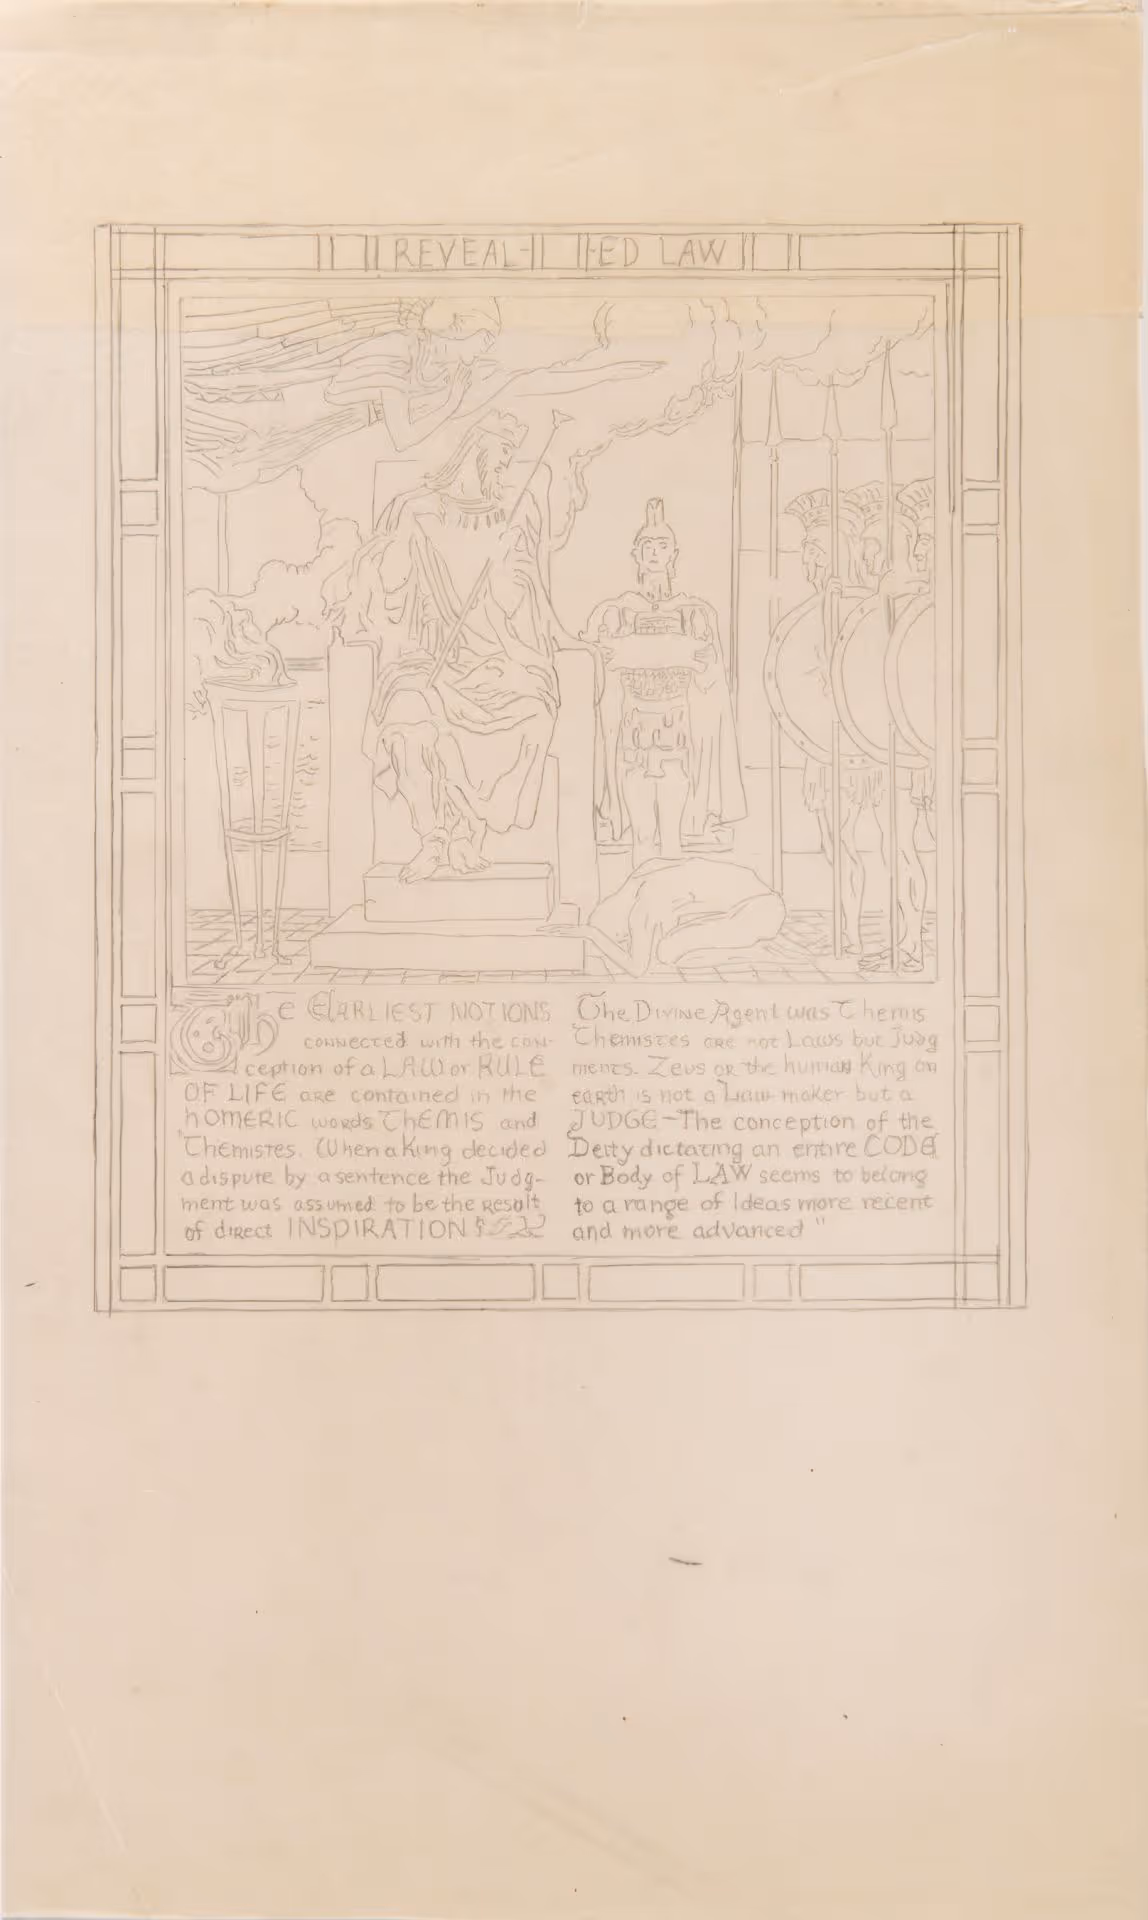 REVEAL- -ED LAW
The EARLIEST NOTIONS
connected with the con-
ception of a LAW or RULE
OF LIFE are contained in the
HOMERIC words THEMIS and
Themistes. When a King decided
a dispute by a sentence the Judg-
ment was assumed to be the Result
of direct INSPIRATION
The Divine Agent was Themis
Themistes are not Laws but Judg
ments. Zeus or the human King on
earth is not a Law maker but a
JUDGE - The conception of the
Deity dictating an entire CODE
or Body of LAW seems to belong
to a range of Ideas more recent
and more advanced "